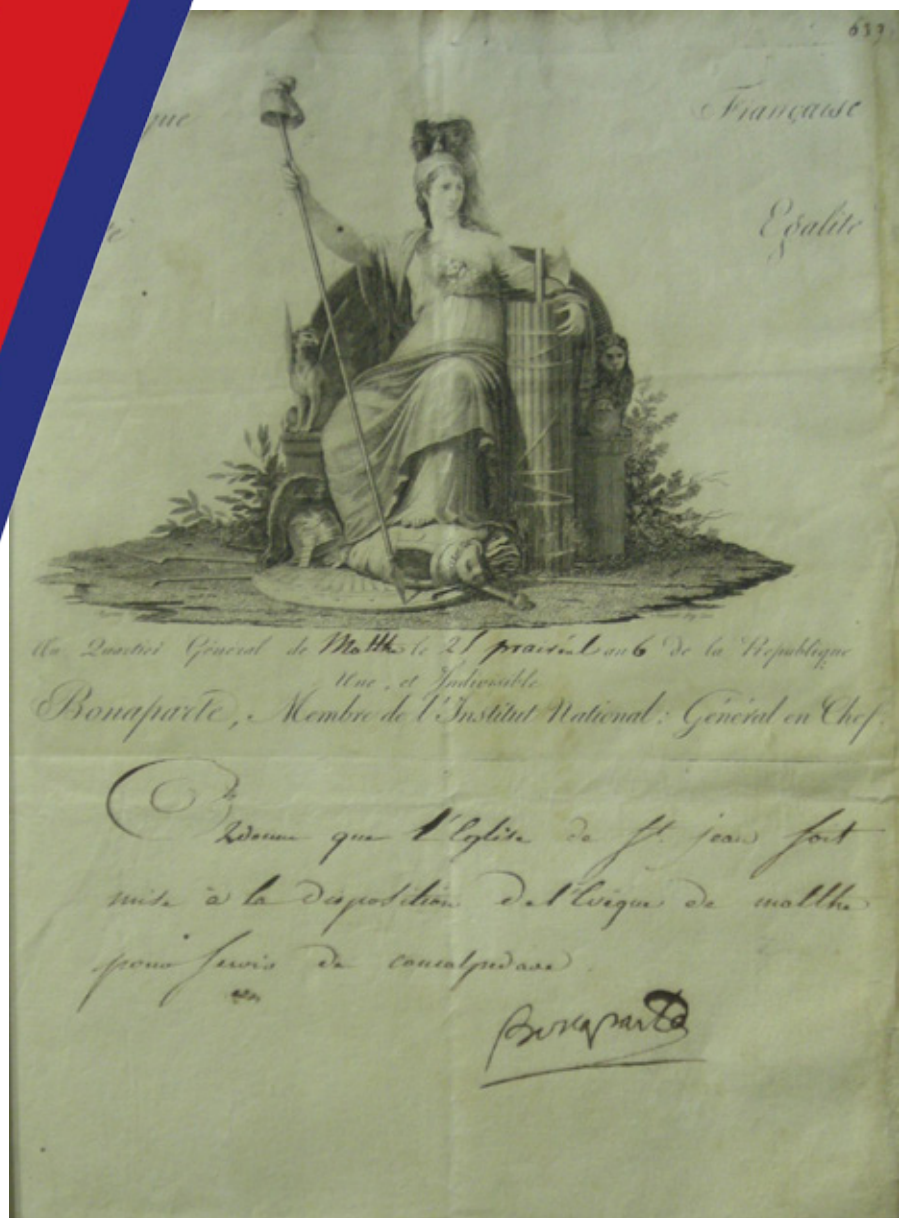 637.
que Française
é Egalité
Au Quartier Général de Malthe le 25 prairial an 6 de la République
Une, et Indivisible
Bonaparte, Membre de l'Institut National; Général en Chef.
Ordonne que l'Eglise de St. jean soit
mise à la disposition de l'Evêque de malthe
pour servir de
Bonaparte